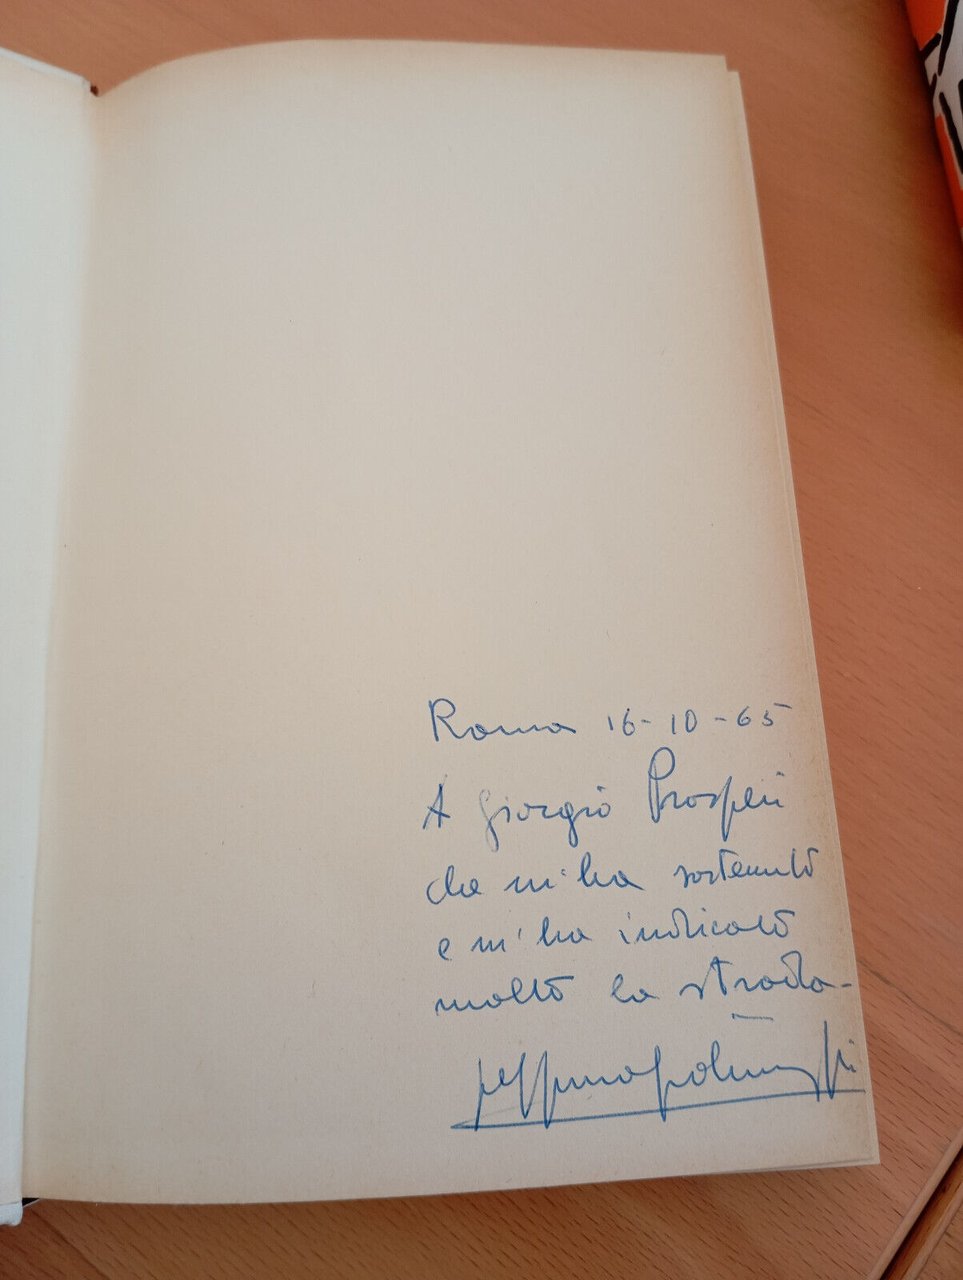 Roma 16-10-65
A Giorgio Prosperi
che m'ha sostenuto
e m'ha indicato
molto la strada-